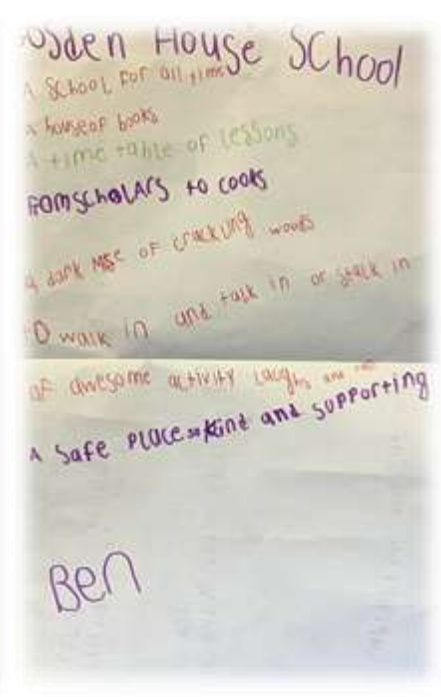 osden House School
A School for all time
A house of books
A time table of lessons
From scholars to cooks
a dark of cracking woods
to walk in and talk in or stalk in
of awesome activity Laughs and
A safe place so kind and supporting
Ben